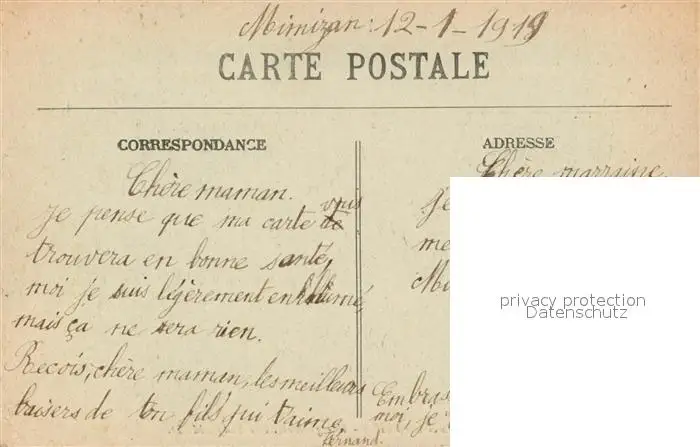 Mimizan: 12-1-1919
CARTE POSTALE
CORRESPONDANCE
Chère maman.
Je pense que ma carte vous
trouvera en bonne santé,
moi je suis légèrement enrhumé,
mais ça ne sera rien.
Recois, chère maman, les meilleurs
baisers de ton fils qui t'aime
Fernand.
ADRESSE
Chère marraine
Je
me
Mi
Embras
moi, je
privacy protection
Datenschutz